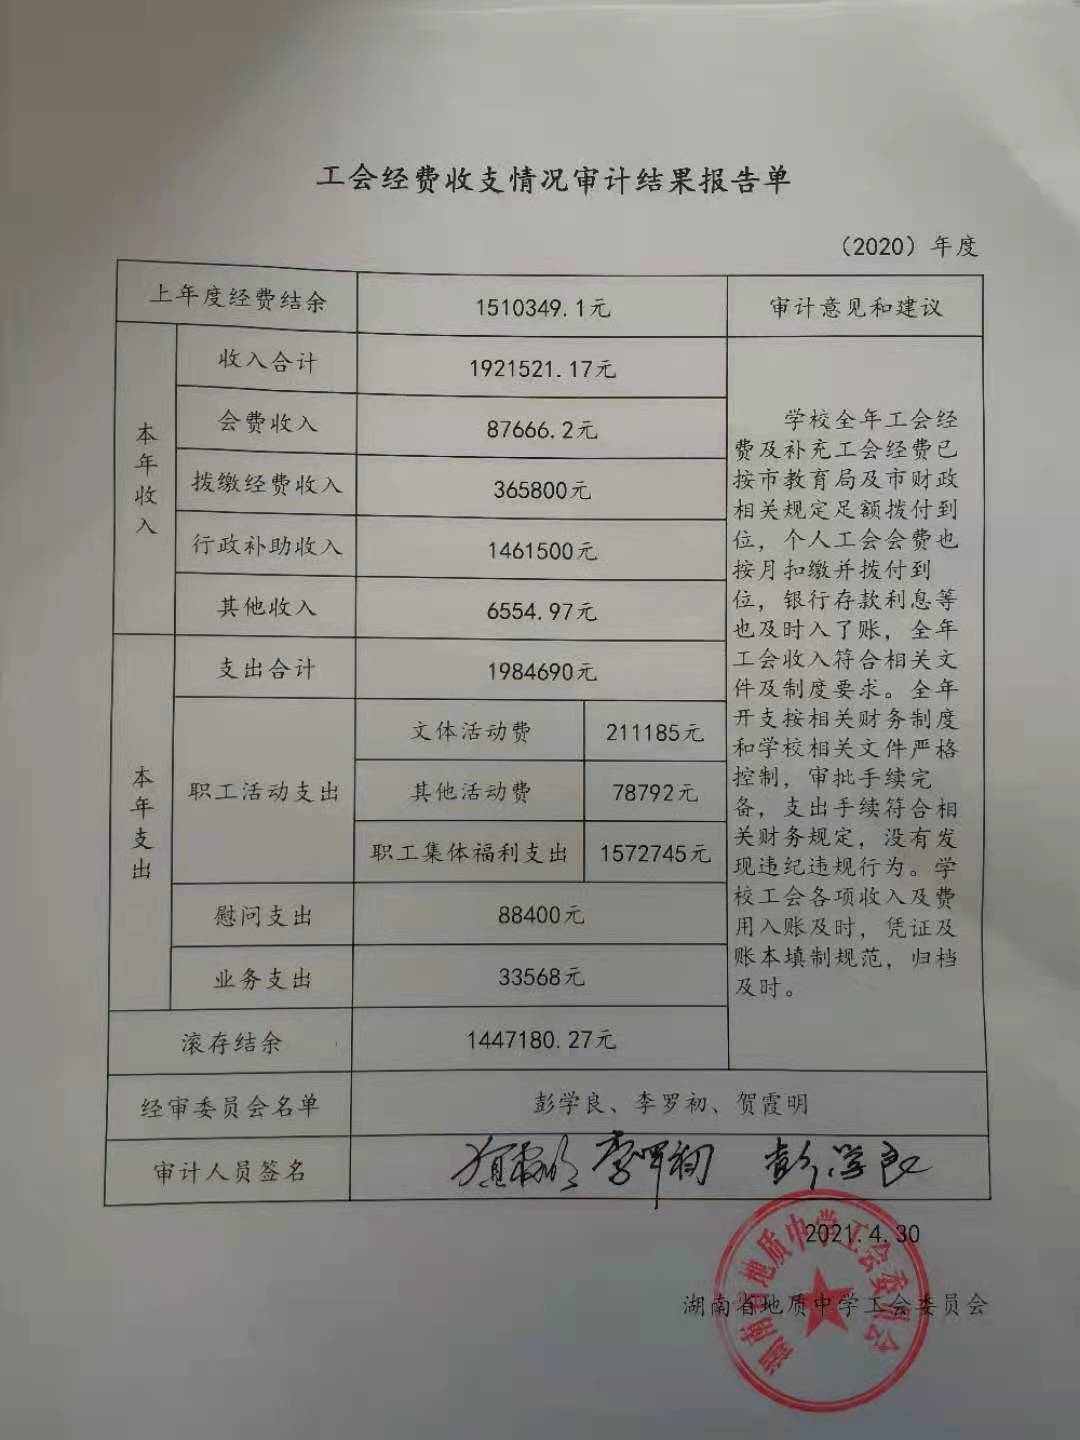 工会经费收支情况审计结果报告单
（2020）年度
上年度经费结余 1510349.1元 审计意见和建议
本年收入
收入合计 1921521.17元
会费收入 87666.2元
拨缴经费收入 365800元
行政补助收入 1461500元
其他收入 6554.97元
本年支出
支出合计 1984690元
职工活动支出
文体活动费 211185元
其他活动费 78792元
职工集体福利支出 1572745元
慰问支出 88400元
业务支出 33568元
滚存结余 1447180.27元
学校全年工会经
费及补充工会经费已
按市教育局及市财政
相关规定足额拨付到
位，个人工会会费也
按月扣缴并拨付到
位，银行存款利息等
也及时入了账，全年
工会收入符合相关文
件及制度要求。全年
开支按相关财务制度
和学校相关文件严格
控制，审批手续完
备，支出手续符合相
关财务规定，没有发
现违纪违规行为。学
校工会各项收入及费
用入账及时，凭证及
账本填制规范，归档
及时。
经审委员会名单 彭学良、李罗初、贺霞明
审计人员签名 贺霞明 李罗初 彭学良
2021.4.30
湖南省地质中学工会委员会
湖南省地质中学工会委员会